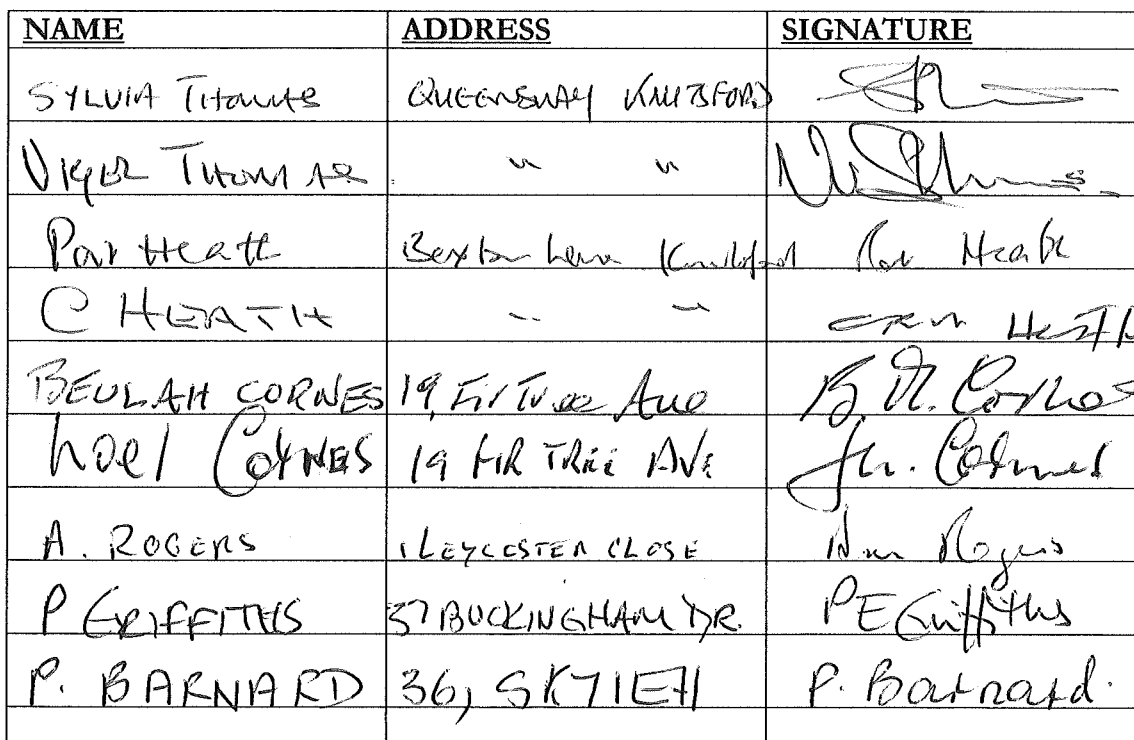 NAME ADDRESS SIGNATURE
SYLVIA THOMAS QUEENSWAY KNUTSFORD
NIGEL THOMAS " "
Pat Heath Bexton Lane Knutsford Pat Heath
C HEATH " " HEATH
BEULAH CORNES 19, Fir Tree Ave B. M. Cornes
Noel CORNES 19 FIR TREE AVE Cornes
A. ROGERS 1 LEYCESTER CLOSE Ann Rogers
P GRIFFITHS 37 BUCKINGHAM DR. P E Griffiths
P. BARNARD 36, SK71EH P. Barnard.